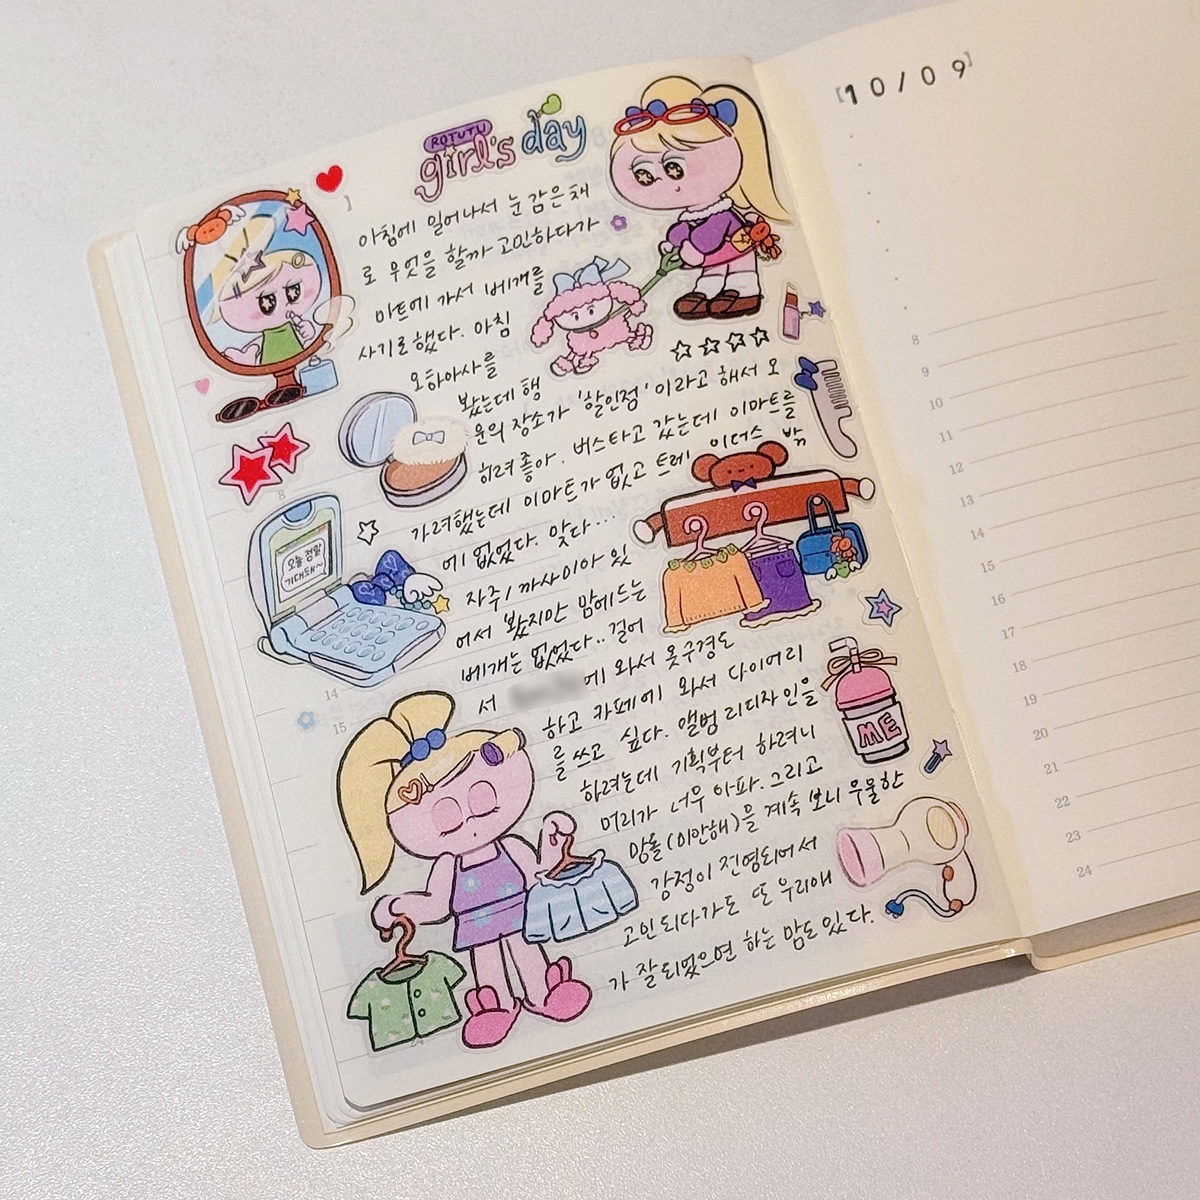 ROTUTU
girl's day
[10/09]
아침에 일어나서 눈 감은 채
로 무엇을 할까 고민하다가
마트에 가서 베개를
사기로 했다. 아침
오하아사를
봤는데 행
운의 장소가 '할인점' 이라고 해서 오
히려 좋아. 버스타고 갔는데 이마트를
가려했는데 이마트가 없고 트레이더스 밖
에 없었다. 맞다...
자주/까사미아 있
어서 봤지만 맘에드는
베개는 없었다.. 걸어
서 에 와서 옷구경도
하고 카페에 와서 다이어리
를 쓰고 싶다. 앨범 리디자인을
하려는데 기획부터 하려니
머리가 너무 아파. 그리고
망돌(미안해)을 계속 보니 우울한
감정이 전염되어서
고민되다가도 또 우리애
가 잘되었으면 하는 맘도 있다.
오늘 정말
기대돼~
ME
8
14
15
8
9
10
11
12
13
14
15
16
17
18
19
20
21
22
23
24